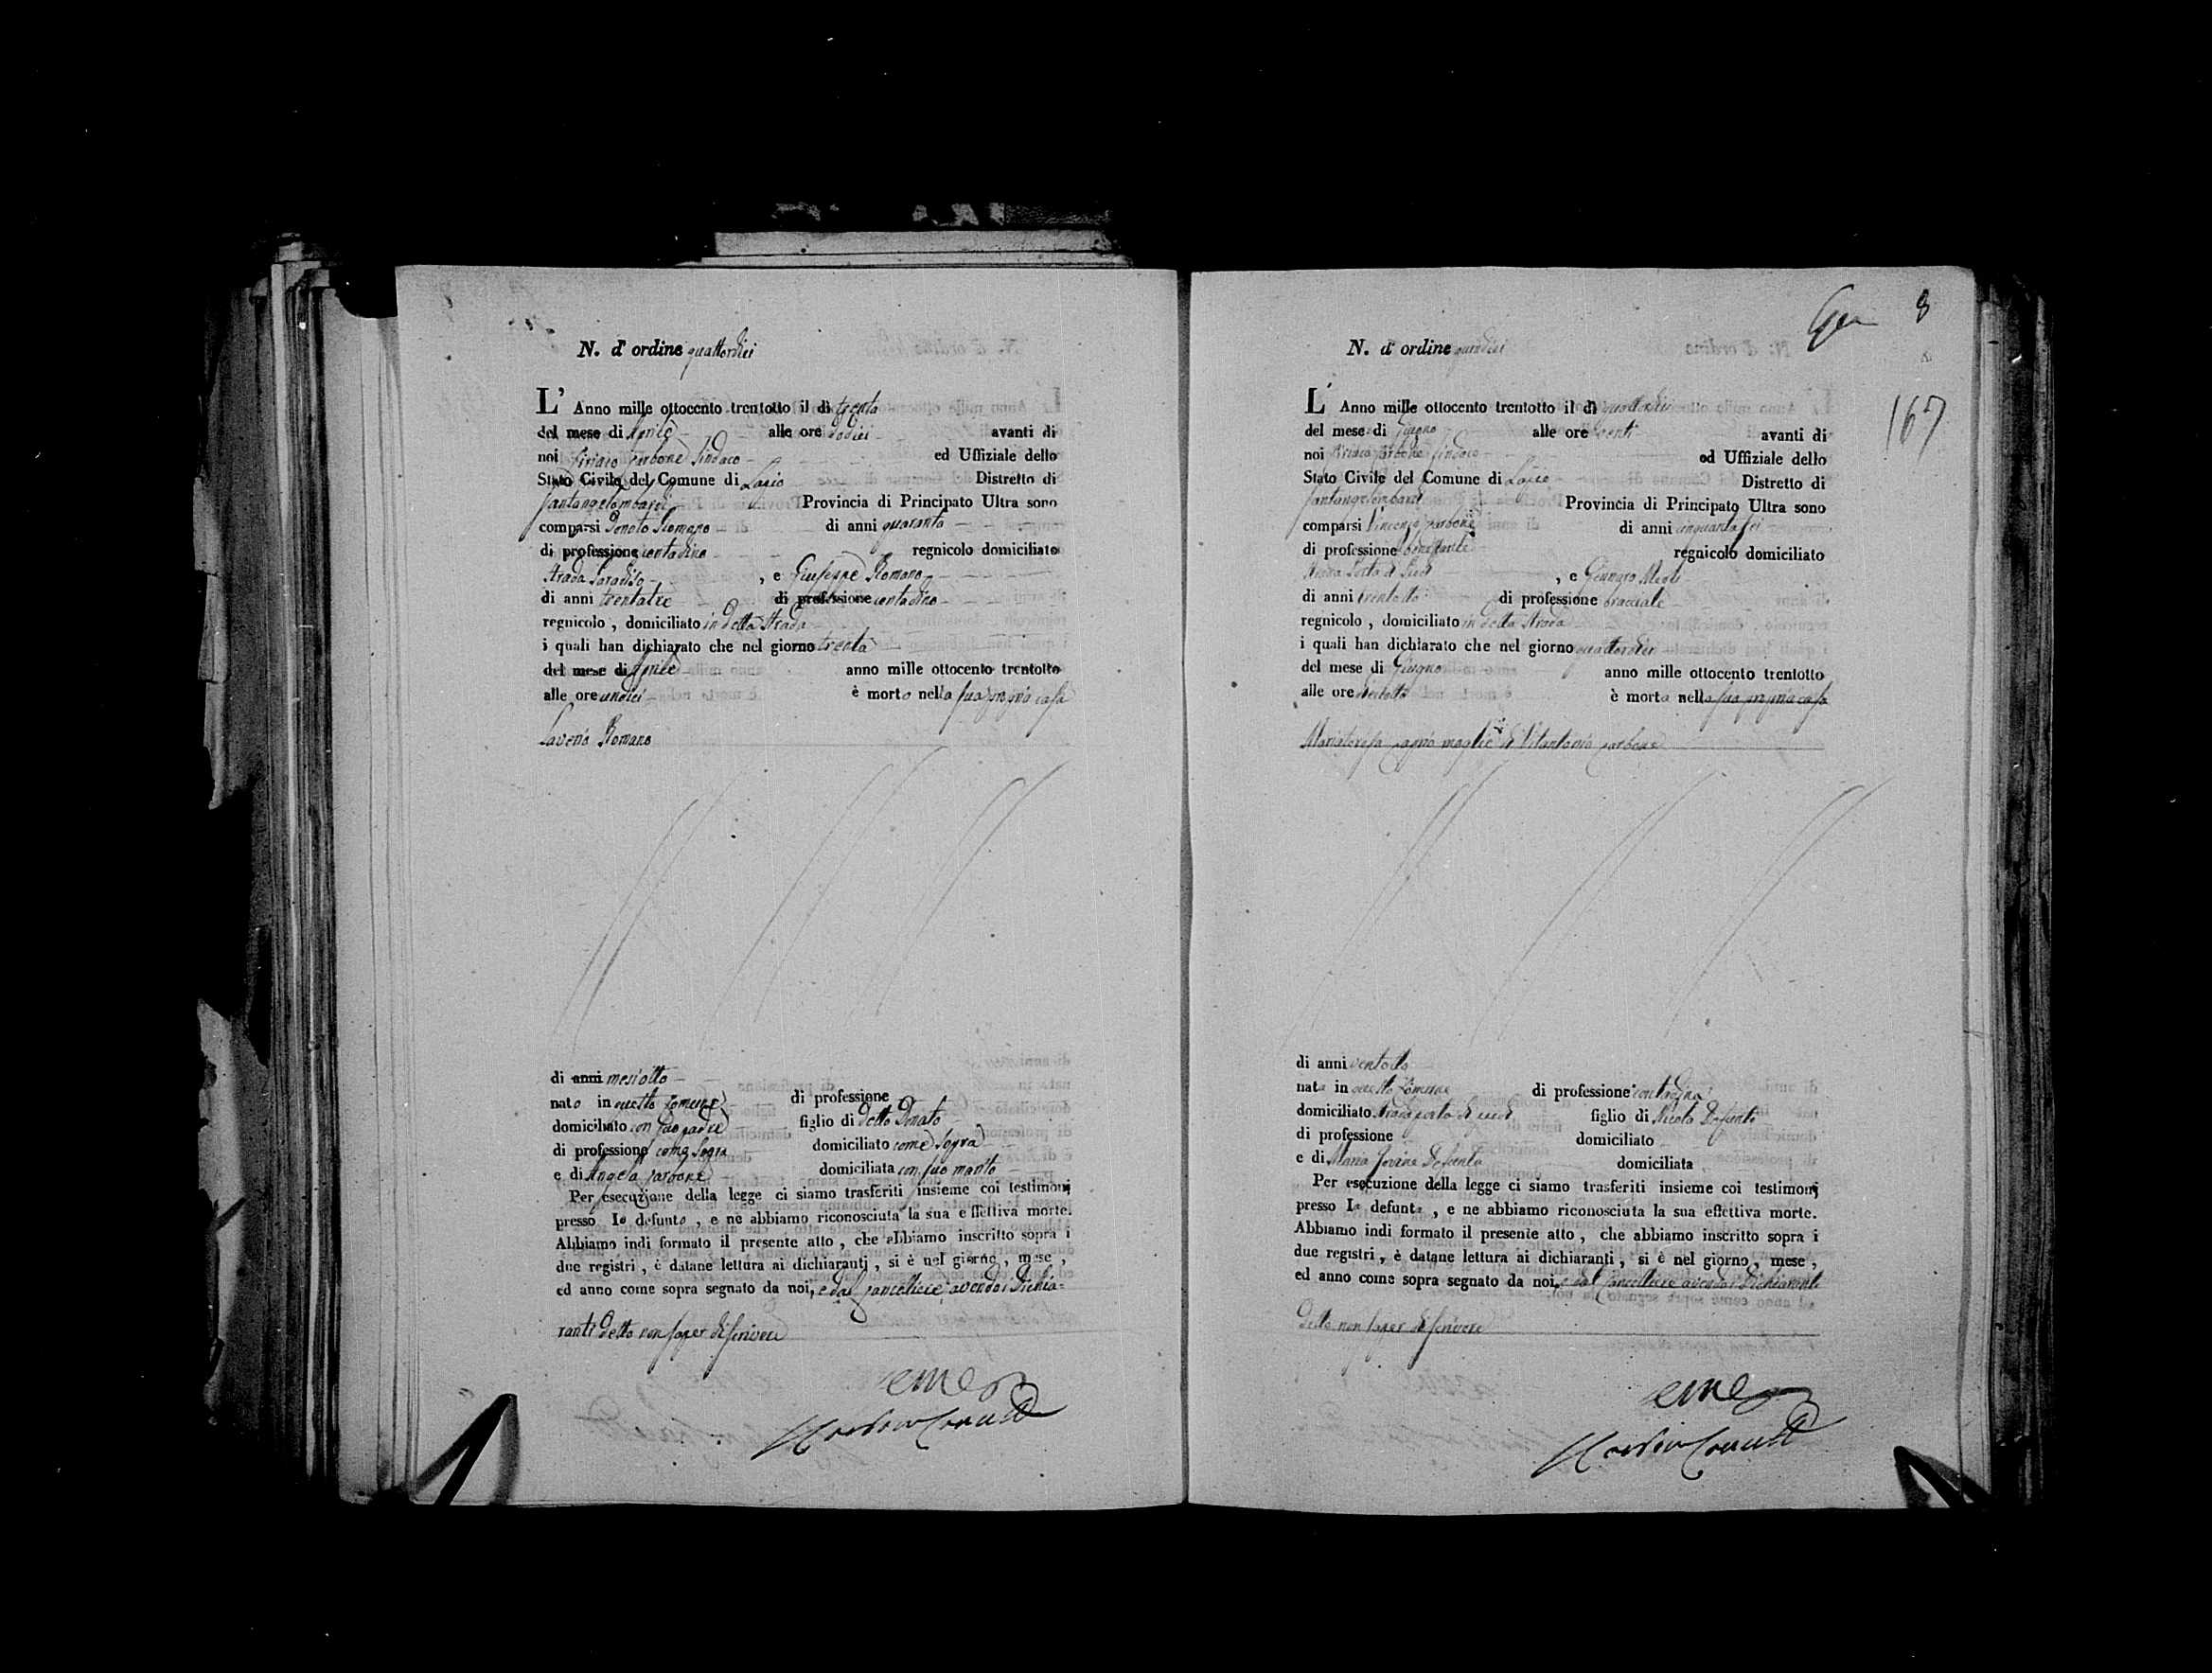 N. d' ordine quattordici
L' Anno mille ottocento trentotto il dì trenta
del mese di Aprile alle ore dodici avanti di
noi Ciriaco Carbone Sindaco ed Uffiziale dello
Stato Civile del Comune di Distretto di
Santangelombardi Provincia di Principato Ultra sono
comparsi Donato Romano di anni quaranta
di professione contadino regnicolo domiciliato
Strada Paradiso , e Giuseppe Romano
di anni trentatre di professione contadino
regnicolo , domiciliato in detta Strada
i quali han dichiarato che nel giorno trenta
del mese di Aprile anno mille ottocento trentotto
alle ore undici è morto nella sua propria casa
Saverio Romano
di anni mesi otto
nato in questo Comune di professione
domiciliato con suo padre figlio di detto Donato
di professione come sopra domiciliato come sopra
e di Angela Carbone domiciliata con suo marito
Per esecuzione della legge ci siamo trasferiti insieme coi testimonj
presso lo defunto , e ne abbiamo riconosciuta la sua effettiva morte.
Abbiamo indi formato il presente atto , che abbiamo inscritto sopra i
due registri , è datane lettura ai dichiaranti , si è nel giorno , mese ,
ed anno come sopra segnato da noi, e dal Cancelliere avendo i dichia=
ranti detto non saper di scrivere
8
167
N. d' ordine quindici
L' Anno mille ottocento trentotto il dì quattordici
del mese di Giugno alle ore venti avanti di
noi Ciriaco Carbone Sindaco ed Uffiziale dello
Stato Civile del Comune di Distretto di
Santangelombardi Provincia di Principato Ultra sono
comparsi Vincenzo Carbone di anni cinquantasei
di professione regnicolo domiciliato
Strada Porta di , e Gennaro
di anni trentotto di professione bracciale
regnicolo , domiciliato in detta Strada
i quali han dichiarato che nel giorno quattordici
del mese di Giugno anno mille ottocento trentotto
alle ore è morta nella sua propria casa
Mariateresa moglie di Vitantonio Carbone
di anni ventotto
nata in questo Comune di professione contadina
domiciliato Strada porta di figlio di Nicola Defunto
di professione domiciliato
e di Maria Defunta domiciliata
Per esecuzione della legge ci siamo trasferiti insieme coi testimonj
presso la defunta , e ne abbiamo riconosciuta la sua effettiva morte.
Abbiamo indi formato il presente atto , che abbiamo inscritto sopra i
due registri , è datane lettura ai dichiaranti , si è nel giorno , mese ,
ed anno come sopra segnato da noi, e dal Cancelliere avendo i Dichiaranti
detto non saper di scrivere